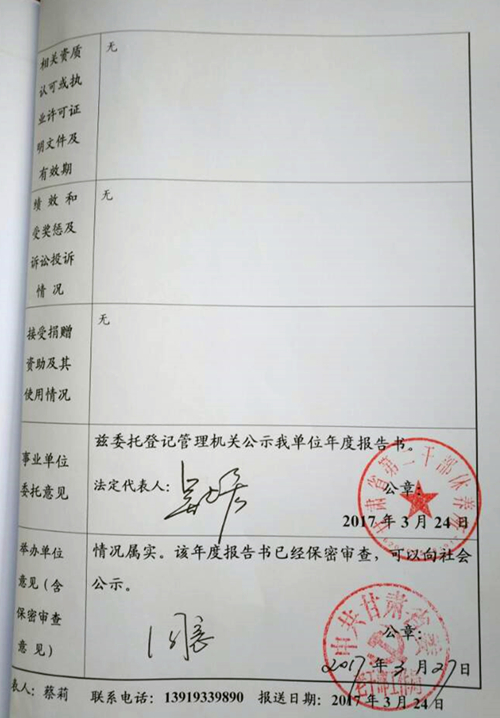 相关资质
认可或执
业许可证
明文件及
有效期
无
绩 效 和
受奖惩及
诉讼投诉
情 况
无
接受捐赠
资助及其
使用情况
无
事业单位
委托意见
兹委托登记管理机关公示我单位年度报告书。
法定代表人：
公章：
2017 年 3 月 24 日
甘肃省第二干部休养所
举办单位
意见（含
保密审查
意 见）
情况属实。该年度报告书已经保密审查，可以向社会
公示。
公章：
2017年 3 月 27 日
中共甘肃省委
老干部工作局
表人：蔡莉 联系电话：13919339890 报送日期：2017 年 3 月 24 日